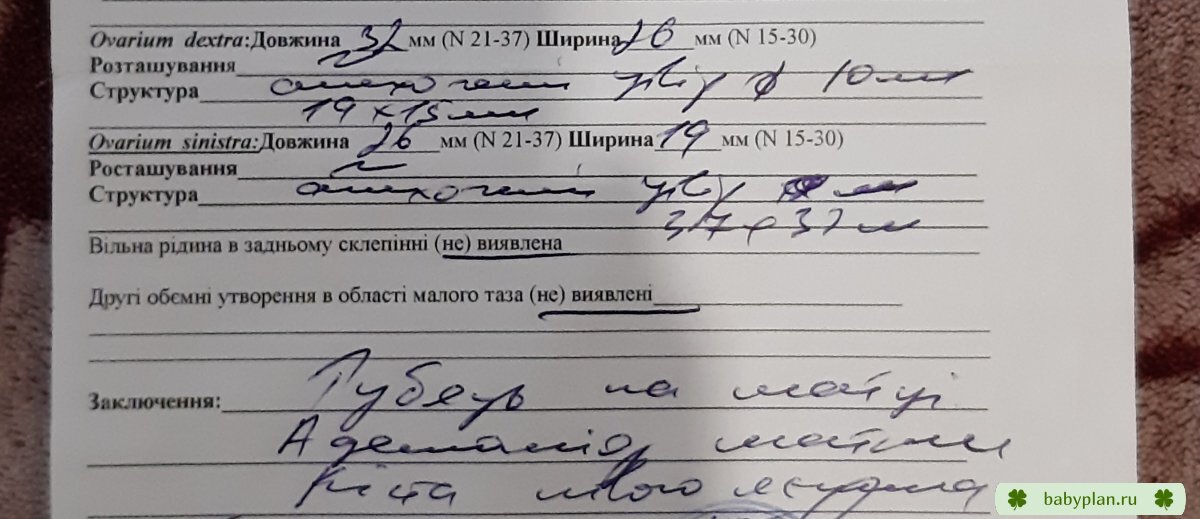 Ovarium dextra: Довжина 32 мм (N 21-37) Ширина 26 мм (N 15-30)
Розташування
Структура анехоген ф 10 мм
19 х 15 мм
Ovarium sinistra: Довжина 26 мм (N 21-37) Ширина 19 мм (N 15-30)
Росташування
Структура анехоген мм
37 х 32 м
Вільна рідина в задньому склепінні (не) виявлена
Другі обємні утворення в області малого таза (не) виявлені
Заключення: Рубець на матці
Аденоміоз матки
Кіста лівого яєчника
babyplan.ru